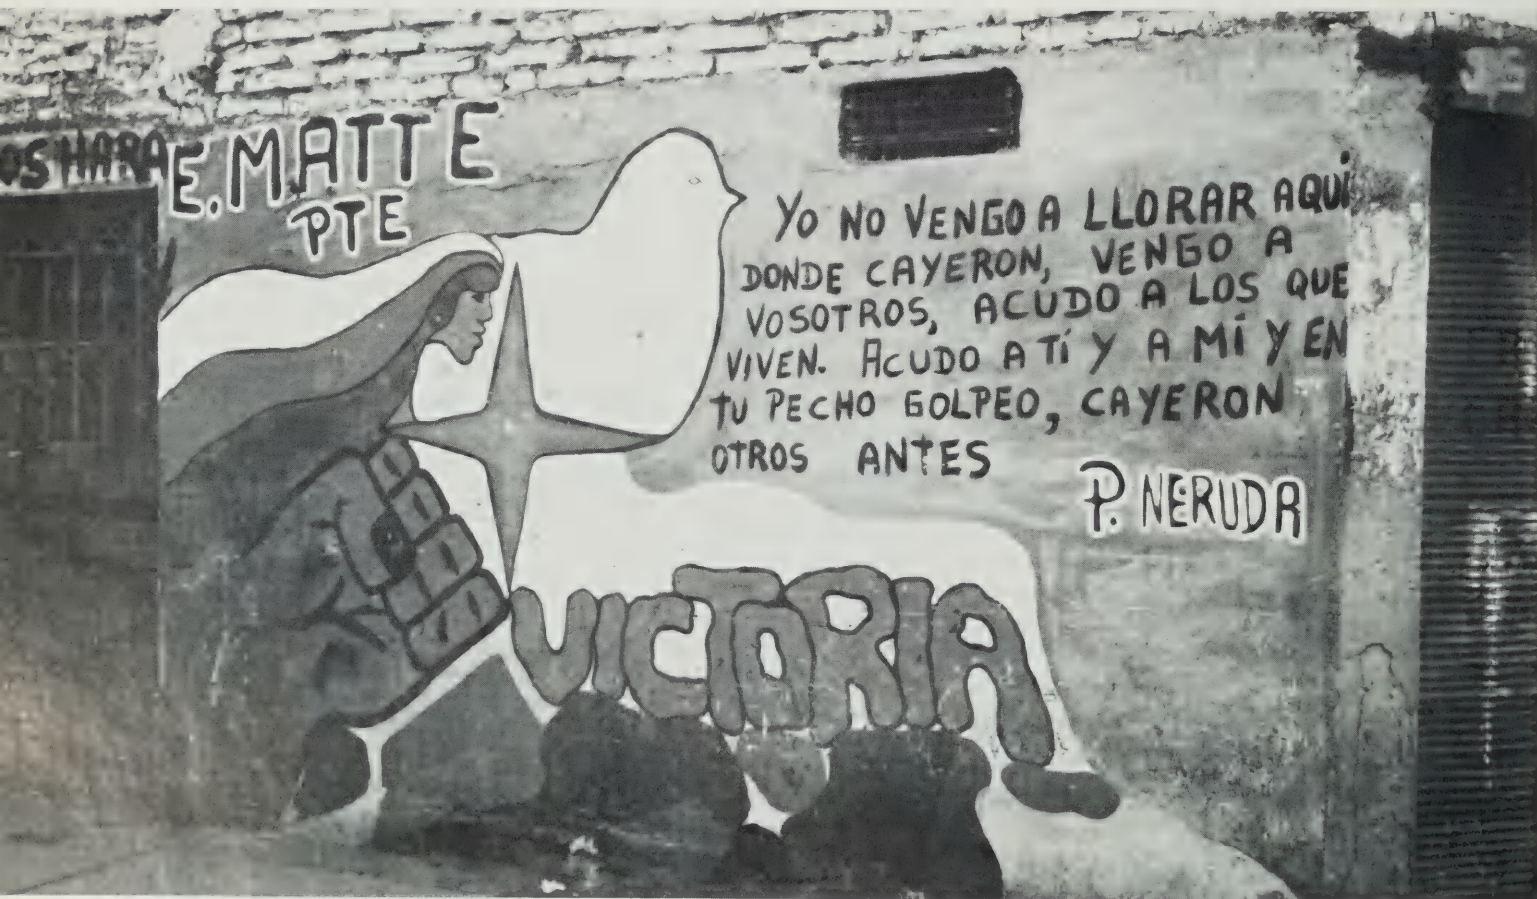 OS HARA
E. MATTE
PTE
YO NO VENGO A LLORAR AQUÍ
DONDE CAYERON, VENGO A
VOSOTROS, ACUDO A LOS QUE
VIVEN. ACUDO A TÍ Y A MÍ Y EN
TU PECHO GOLPEO, CAYERON
OTROS ANTES
P. NERUDA
VICTORIA